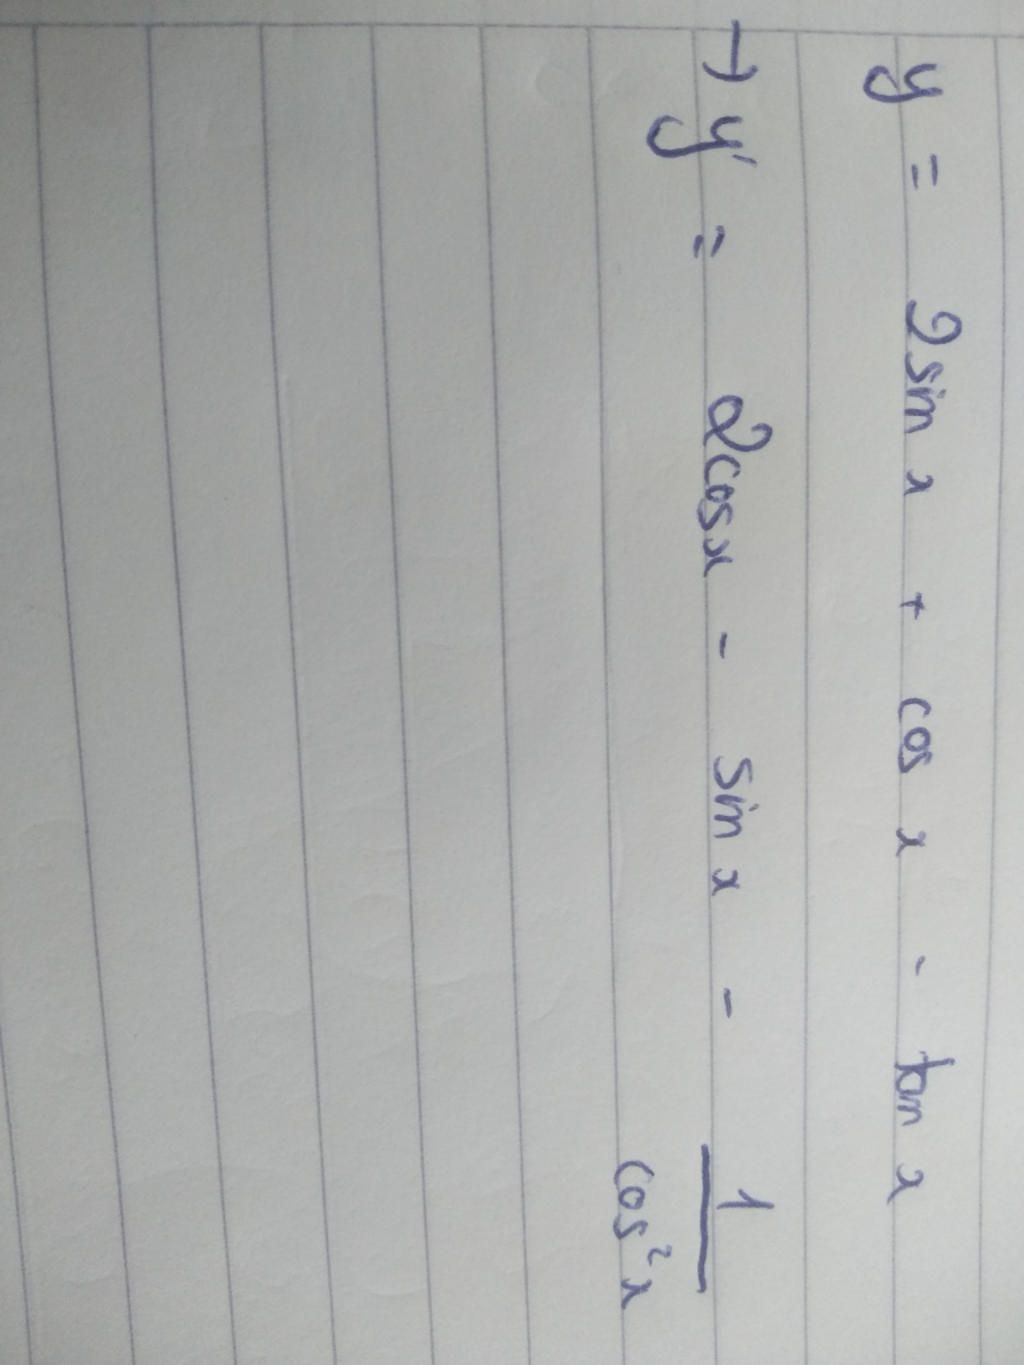 y = 2sin x + cos x - tan x
→ y' = 2cosx - sin x - 1/cos²x